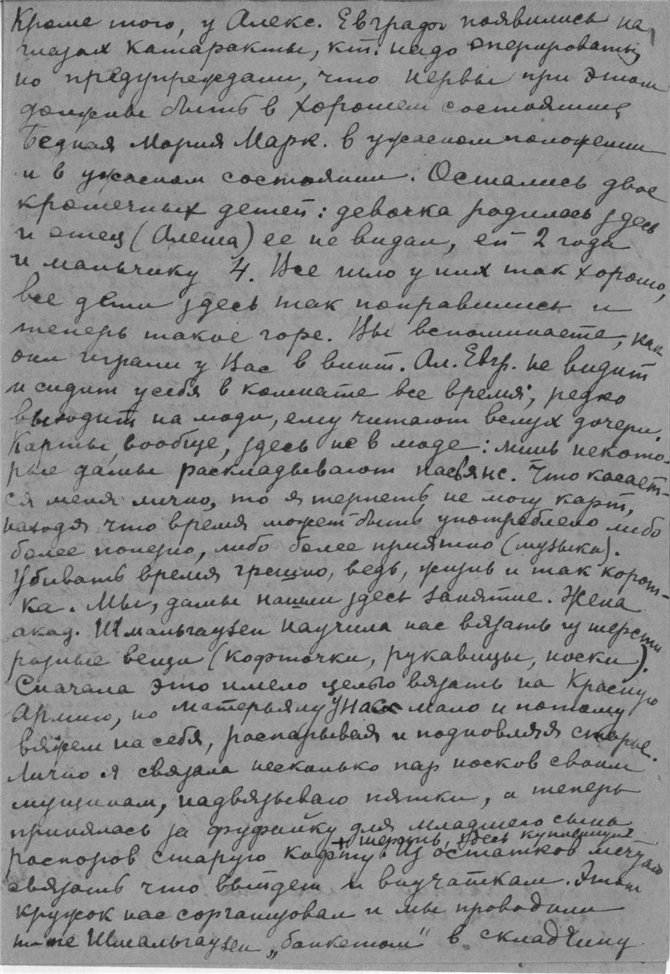 Кроме того, у Алекс. Евграфов появились на
глазах катаракты, кт. надо оперировать,
но предупреждали, что нервы при этом
должны быть в хорошем состоянии,
Бедная Мария Марк. в ужасном положении
и в ужасном состоянии. Остались двое
крошечных детей: девочка родилась здесь
и отец (Алеша) ее не видал, ей 2 года
и мальчику 4. Все шло у них так хорошо,
все дети здесь так поправились и
теперь такое горе. Вы вспоминаете, как
они играли у Вас в винт. Ал. Евгр. не видит
и сидит у себя в комнате все время, редко
выходит на люди, ему читают вслух дочери.
Карты, вообще, здесь не в моде: лишь некото-
рые дамы раскладывают пасьянс. Что касает-
ся меня лично, то я терпеть не могу карт,
находя что время может быть употреблено либо
более полезно, либо более приятно (музыка).
Убивать время грешно, ведь, жизнь и так корот-
ка. Мы, дамы нашли здесь занятие. Жена
акад. Шмальгаузен научила нас вязать из шерсти
разные вещи (кофточки, рукавицы, носки).
Сначала это имело целью вязать на Красную
Армию, но матерьялу у нас мало и потому
вяжем на себя, распарывая и подновляя старье.
Лично я связала несколько пар носков своим
мущинам, надвязываю пятки, а теперь
принялась за фуфайку для младшего сына
распоров старую кофту + шерсть, здесь купленная
из остатков мечтаю
связать что выйдет и внучаткам. Этот
кружок нас сорганизовал и мы проводили
Шмальгаузен „банкетом" в складчину